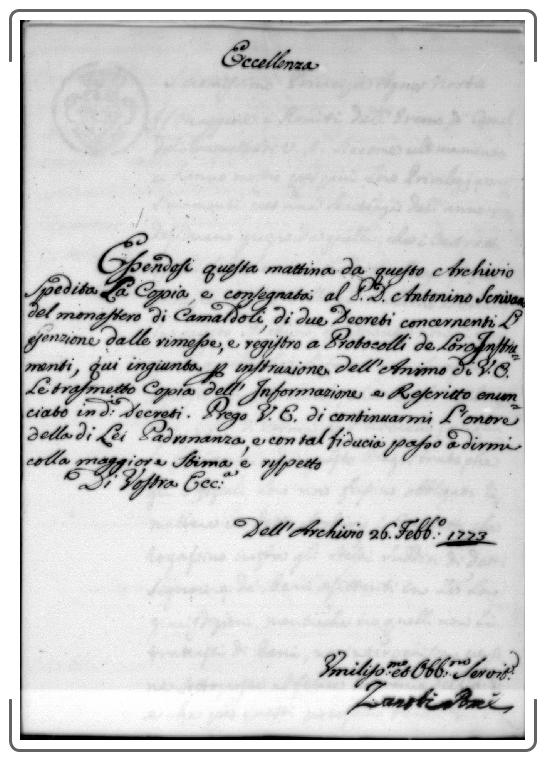 Eccellenza
Essendosi questa mattina da questo Archivio
Spedita La Copia, e consegnata al P. D. Antonino Scrivan
del monastero di Camaldoli, di due Decreti concernenti L'e
senzione dalle rimesse, e registro a Protocolli de Loro Instru=
menti, qui ingiunta p instruzione dell'Animo di V. E.
Le trasmetto Copia dell'Informazione e Rescritto enun=
ciato in d.i Decreti. Prego V. E. di continuarmi L'onore
della di Lei Padronanza, e con tal fiducia passo a dirmi
colla maggiore Stima, e rispetto
Di Vostra Ecc.a
Dell'Archivio 26. Febb.o 1773
Umiliss.mo ed Obb.mo Servit.